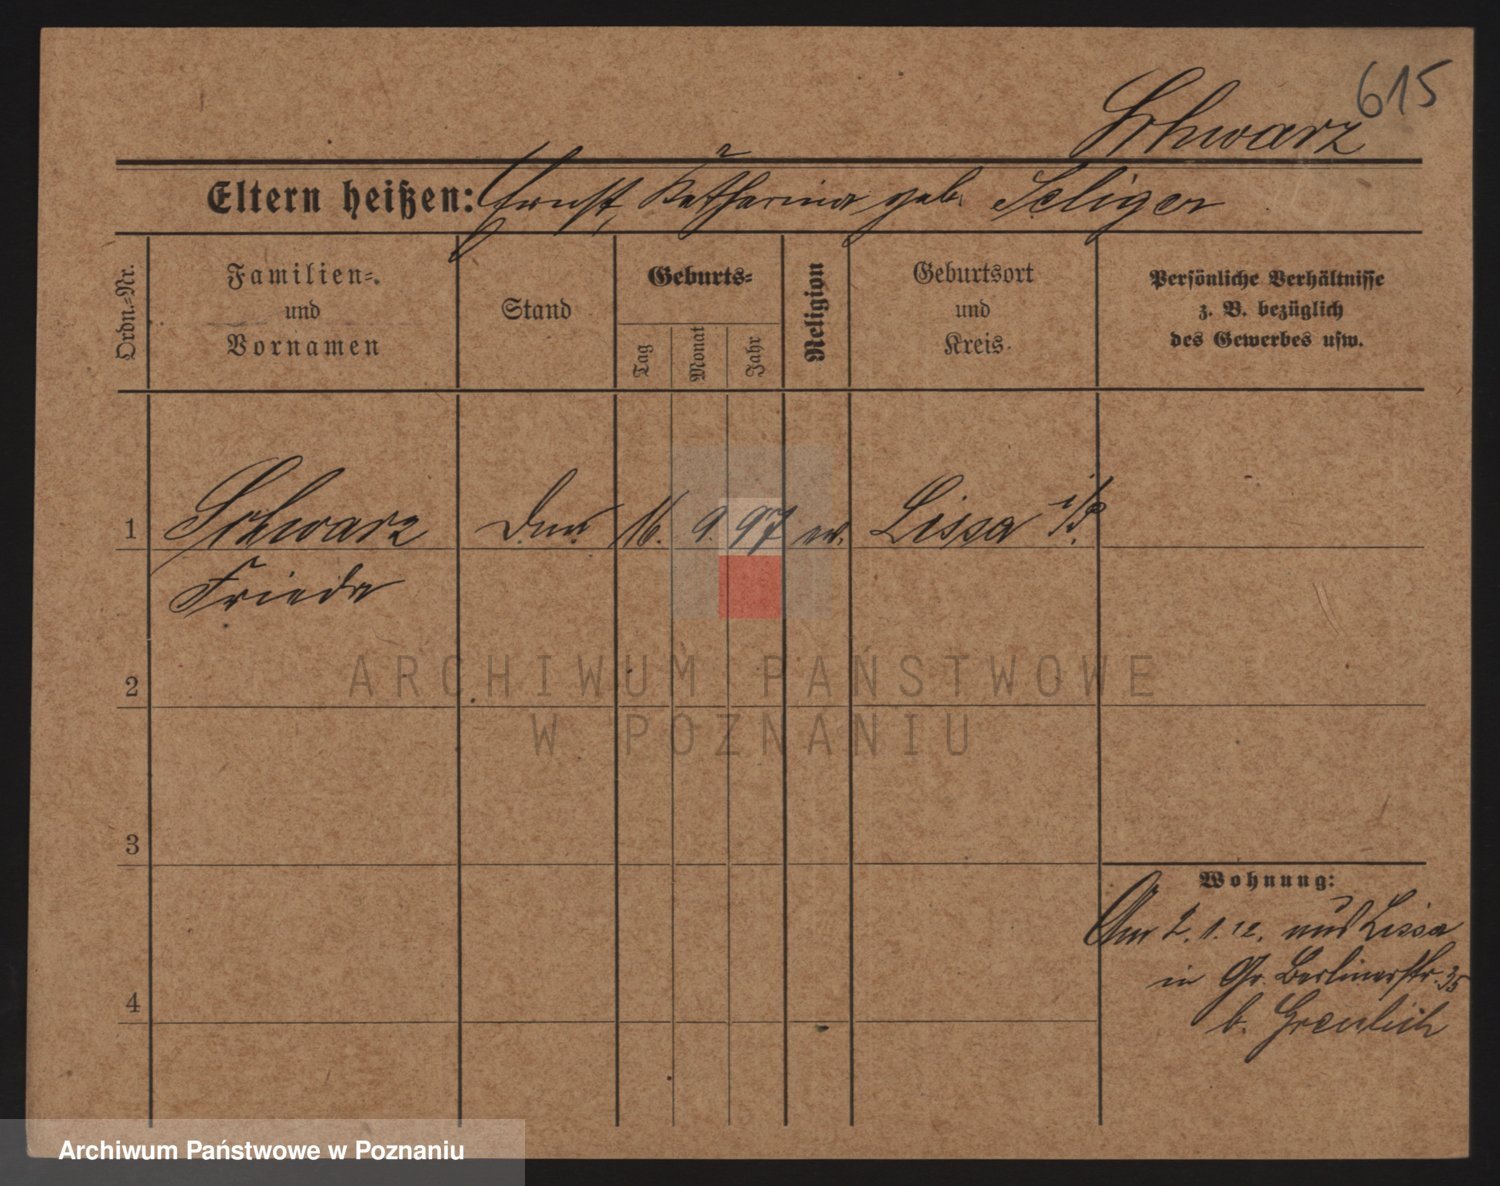 615
Schwarz
Eltern heißen: Ernst, Katharina geb. Seliger
Ordn.=Nr.
Familien=
und
Vornamen
Stand
Geburts=
Tag
Monat
Jahr
Religion
Geburtsort
und
Kreis
Persönliche Verhältnisse
z. B. bezüglich
des Gewerbes usw.
1 Schwarz 16. 9. 97 ev. Lissa i/P.
Frieda
2
ARCHIWUM PAŃSTWOWE
W POZNANIU
3
Wohnung:
Am 2. 1. 12. aus Lissa
in Gr. Berlinerstr. 35
4
b. Greulich
Archiwum Państwowe w Poznaniu